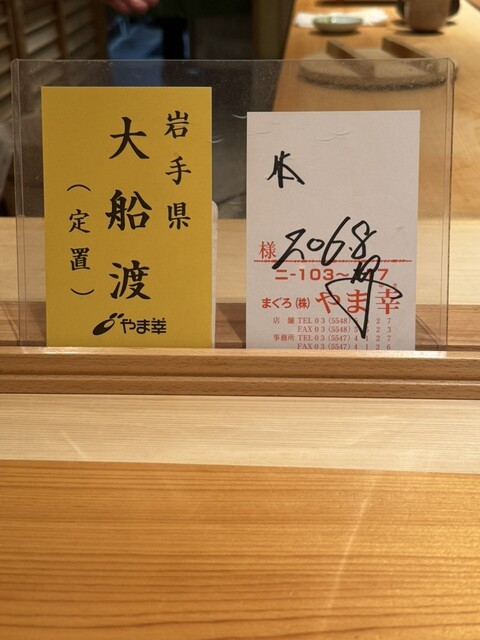 岩手県
大船渡
(定置)
やま幸
様 206.8
ニ-103~
まぐろ(株)やま幸
店舗 TEL 03(5548)
FAX 03(5548)
事務所 TEL 03(5547)4127
FAX 03(5547)4126